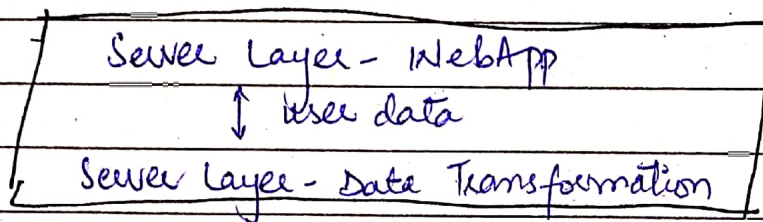 Server Layer - WebApp
↕ user data
Server Layer - Data Transformation